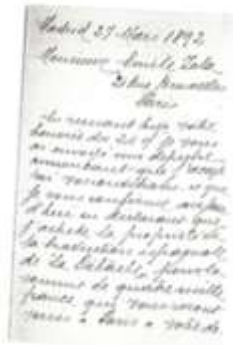 Madrid 27 Mars 1892
Monsieur Emile Zola
Rue Bruxelles
Paris
recevant votre
je vous
ai envoyé une dépêche
annonçant que j'accepte
vos conditions, et que
je vous confirme
déclarant que
j'achète la propriété de
la traduction espagnole
de La Débâcle, pour la
somme de quatre mille
francs que vous seront
à Paris à votre